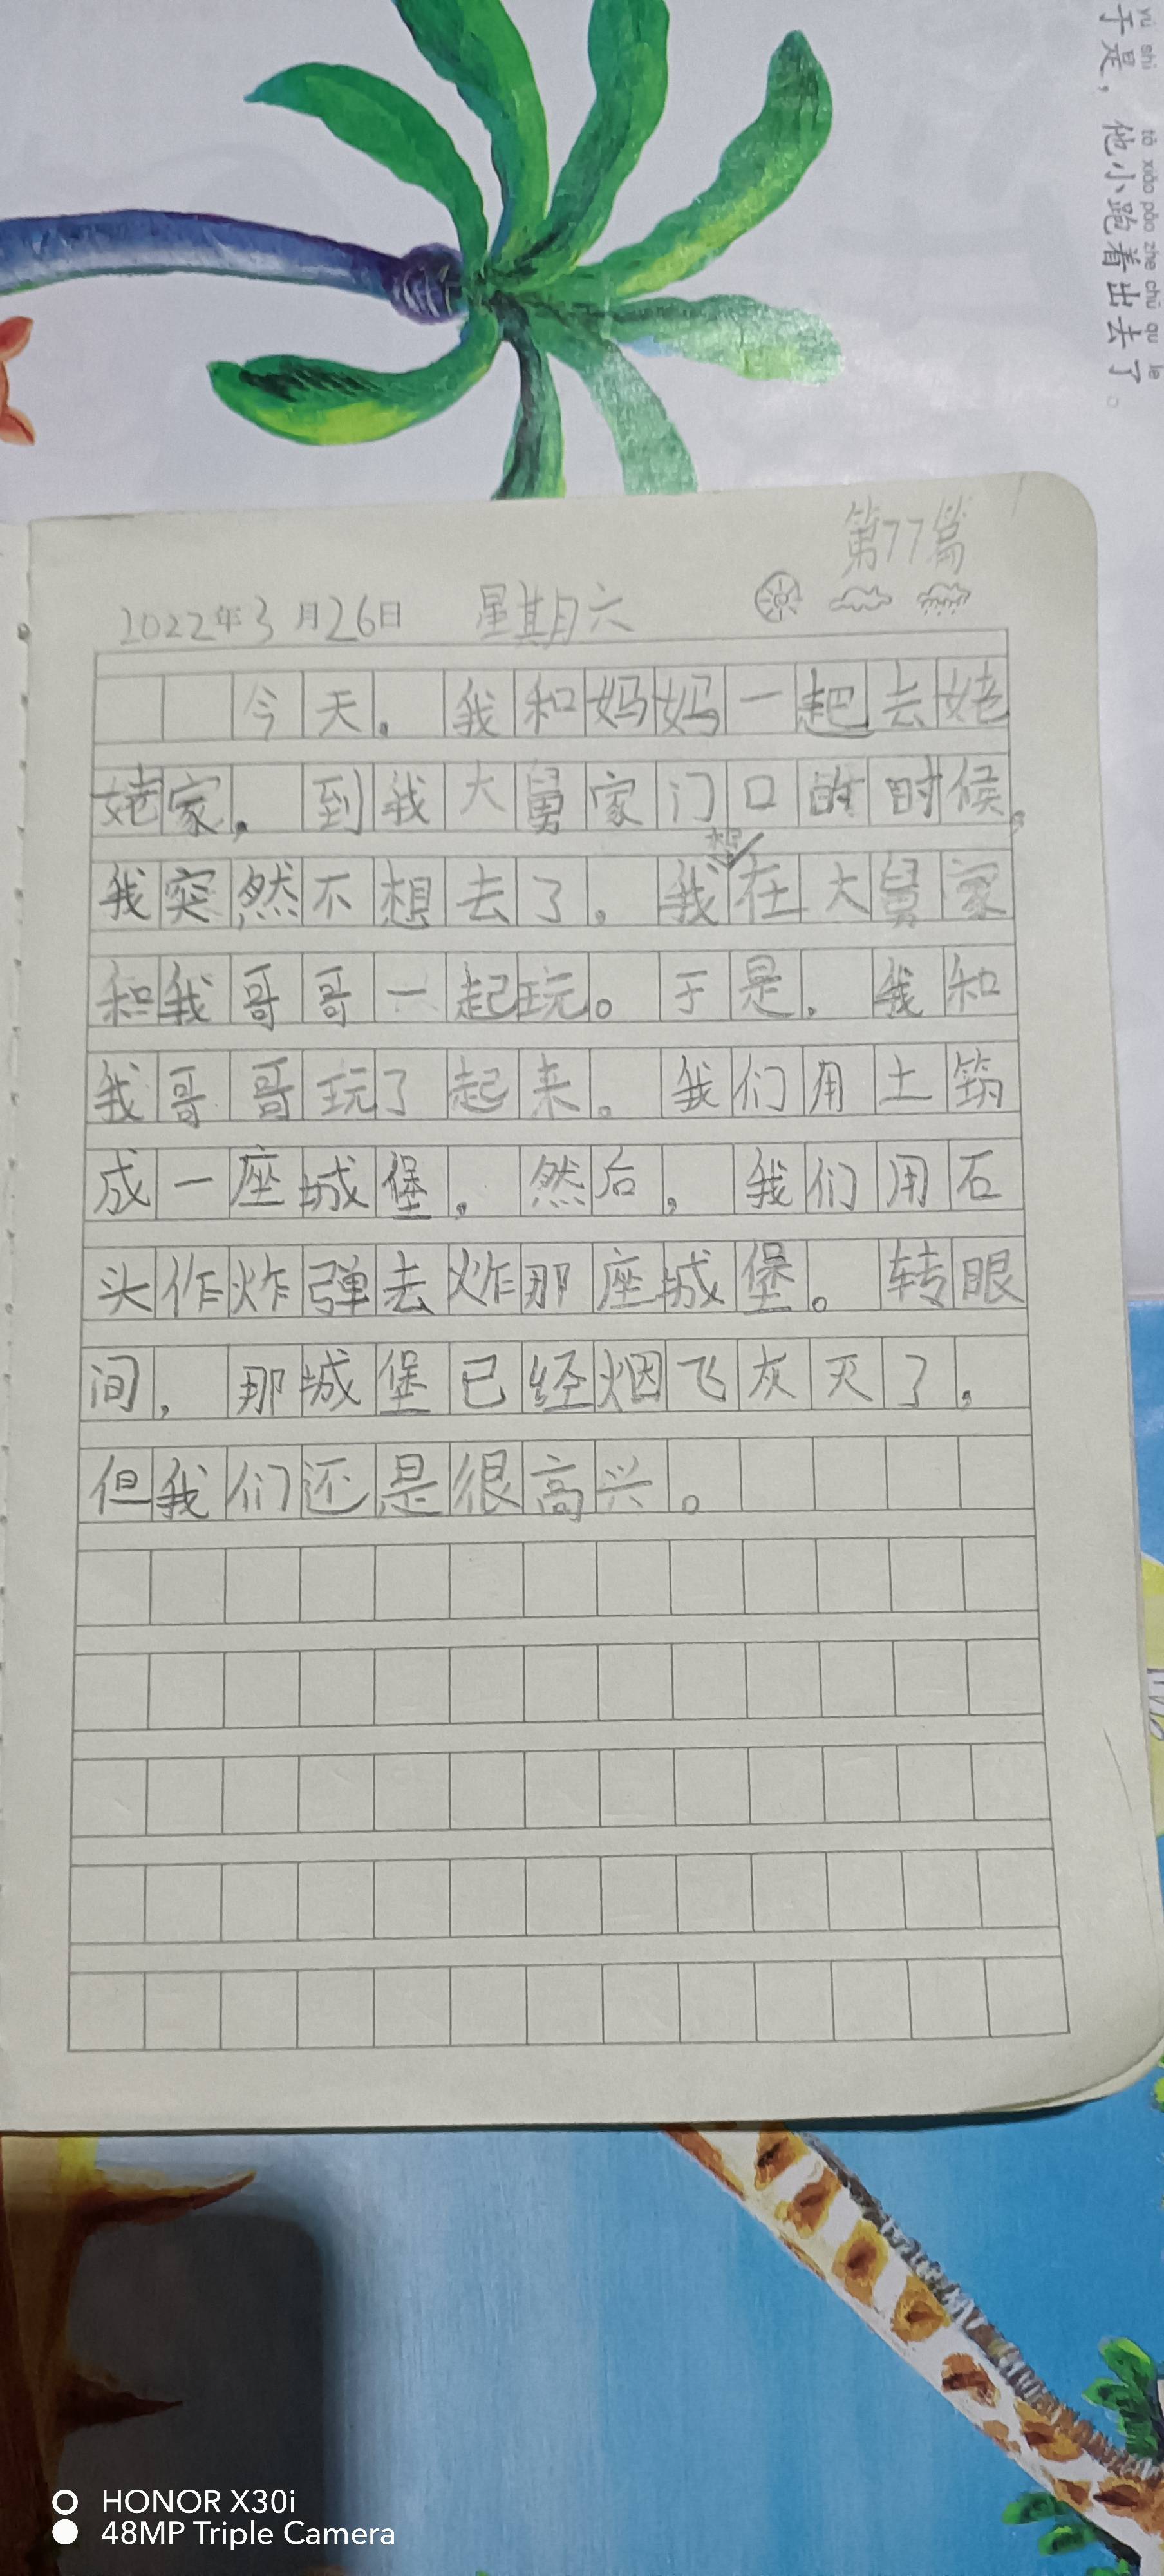 于是，他小跑着出去了。
yú shì tā xiǎo pǎo zhe chū qu le
第77篇
2022年3月26日 星期六
今天，我和妈妈一起去姥
姥家，到我大舅家门口的时候，
我突然不想去了，我想在大舅家
和我哥哥一起玩。于是，我和
我哥哥玩了起来。我们用土筑
成一座城堡，然后，我们用石
头作炸弹去炸那座城堡。转眼
间，那城堡已经烟飞灰灭了，
但我们还是很高兴。
HONOR X30i
48MP Triple Camera